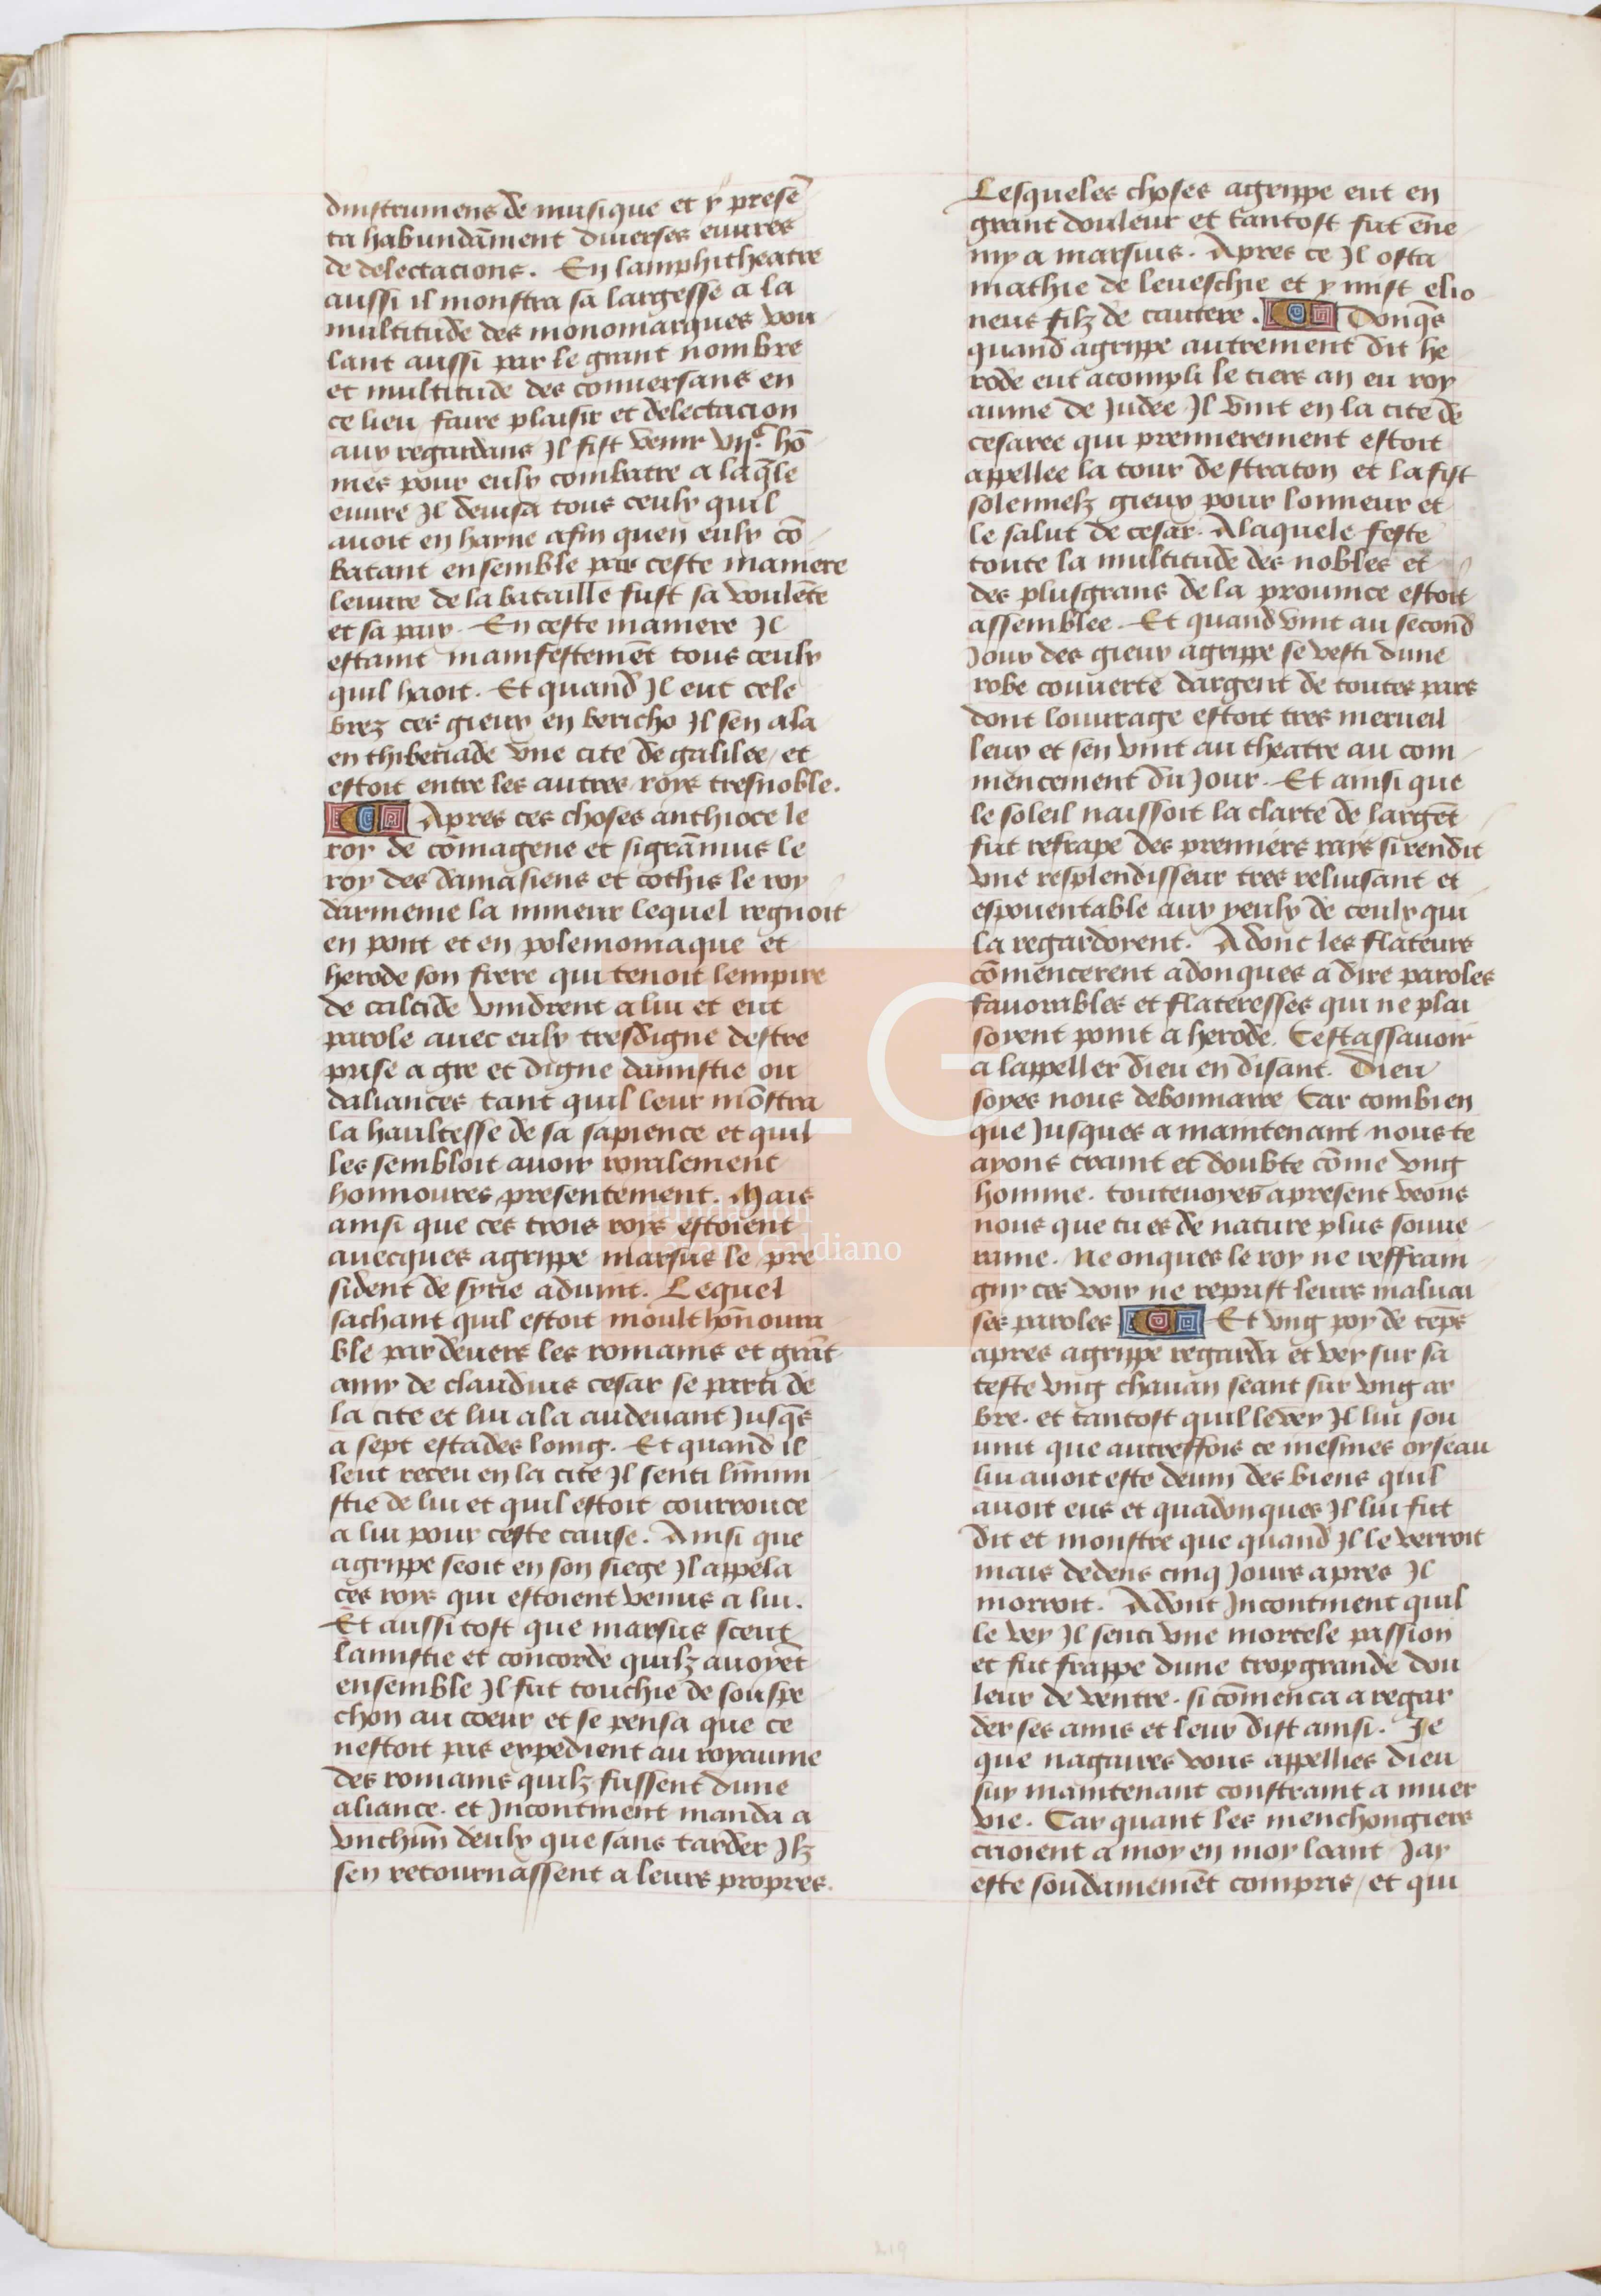 dinstrumens de musique et y presē
ta habundāment diuerses euures
de delectacions. En lamphitheatre
aussi il monstra sa largesse a la
multitude des monomarques vou
lant aussi par le grant nombre
et multitude des conuersans en
ce lieu faire plaisir et delectacion
aux regardans Il fist venir vijᶜ. hō
mes pour eulx combatre a laq̄le
euure Il deuisa tous ceulx quil
auoit en hayne afin quen eulx cō
batant ensemble par ceste maniere
leuure de la bataille fust sa voulēte
et sa paix. En ceste maniere Il
estaint manifestemēt tous ceulx
quil haoit. Et quand Il eut cele
brez ces gieux en bericho Il sen ala
en thiberiade vne cite de galilee / et
estoit entre les autres roys tresnoble.
Apres ces choses anthioce le
roy de cōmagene et sigrānius le
roy des damasiens et cothis le roy
darmenie la mineur lequel regnoit
en pont et en polemomaque et
herode son frere qui tenoit lempire
de calcide vindrent a lui et eut
parole auec eulx tresdigne destre
prise a gre et digne damistie ou
daliances tant quil leur mōstra
la haultesse de sa sapience et quil
les sembloit auoir royalement
honnoures presentement. Mais
ainsi que ces trois roys estoient
auecques agrippe marsus le pre
sident de syrie aduint. Lequel
sachant quil estoit moult hōnoura
ble par deuers les romains et grāt
amy de claudius cesar se parti de
la cite et lui ala audeuant Jusq̄s
a sept estades loing. Et quand il
leut receu en la cite Il senti linimi
stie de lui et quil estoit courrouce
a lui pour ceste cause. Ainsi que
agrippe seoit en son siege Il appela
ces roys qui estoient venus a lui.
Et aussi tost que marsus sceut
lamistie et concorde quilz auoyēt
ensemble Il fut touchie de souspe
chon au coeur et se pensa que ce
nestoit pas expedient au royaume
des romains quilz fussent dune
aliance. et Incontinent manda a
vnchūn deulx que sans tarder Ilz
sen retournassent a leurs propres.
Lesqueles choses agrippe eut en
grant douleur et tantost fut ēne
my a marsus. Apres ce Il osta
mathie de leueschie et y mist elio
neus filz de cautere. Donq̄s
quand agrippe autrement dit he
rode eut acompli le tiers an eu roy
aume de Judee Il vint en la cite de
cesaree qui premierement estoit
appellee la tour de straton et la fist
solennelz gieux pour lonneur et
le salut de cesar. A laquele feste
toute la multitude des nobles et
des plusgrans de la prouince estoit
assemblee. Et quand vint au second
Jour des gieux agrippe se vesti dune
robe couuerte dargent de toutes pars
dont louurage estoit tres merueil
leux et sen vint au theatre au com
mencement du Jour. Et ainsi que
le soleil naissoit la clarte de largēt
fut refrape des premiers rays si rendit
vne resplendisseur tres reluisant et
espouentable aux yeulx de ceulx qui
la regardoyent. Adonc les flateurs
cōmencerent adonques a dire paroles
fauorables et flateresses qui ne plai
soyent point a herode. Cestassauoir
a lappeller dieu en disant. Dieu
soyes nous debonnaire Car combien
que Jusques a maintenant nous te
ayons craint et doubte cōme vng
homme. toutenoyes apresent veons
nous que tu es de nature plus souue
raine. Ne onques le roy ne reffrain
gny ces voix ne reprist leurs maluai
ses paroles Et vng poy de tēps
apres agrippe regarda et vey sur sa
teste vng chauan seant sur vng ar
bre. et tantost quil le vey Il lui sou
uint que autreffois ce mesmes oyseau
lui auoit este deuin des biens quil
auoit eus et quadonques Il lui fut
dit et monstre que quand Il le verroit
mais dedens cinq Jours apres Il
morroit. Adont Incontinent quil
le vey Il senti vne mortele passion
et fut frappe dune tropgrande dou
leur de ventre. si cōmenca a regar
der ses amis et leur dist ainsi. Je
que nagaires vous appellies dieu
suy maintenant constraint a muer
vie. Car quant les menchongiers
crioient a moy en moy loant Jay
este soudainemēt compris / et qui
FLG
Fundación
Lázaro Galdiano
219